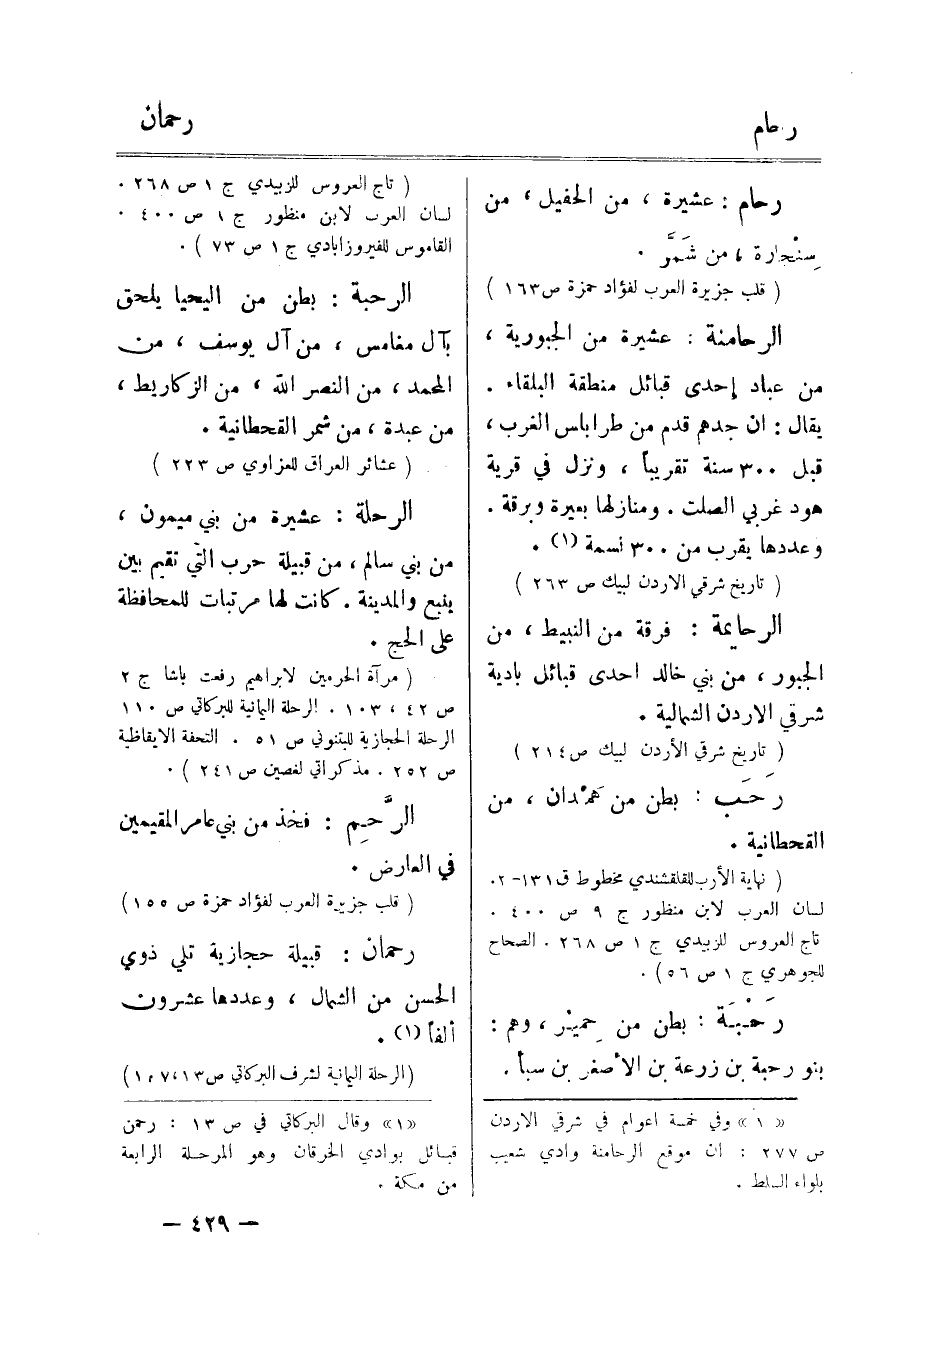 رحام
رحمان
رحام : عشيرة ، من الحفيل ، من
سِنْجارة ، من شَمَّر .
( قلب جزيرة العرب لفؤاد حمزة ص١٦٣ )
الرحامنة : عشيرة من الجبورية ،
من عباد إحدى قبائل منطقة البلقاء .
يقال : ان جدهم قدم من طرابلس الغرب ،
قبل ٣٠٠ سنة تقريباً ، ونزل في قرية
هود غربي الصلت . ومنازلها بعيرة وبرقة .
وعددها يقرب من ٣٠٠ نسمة (١) .
( تاريخ شرقي الاردن لبيك ص ٢٦٣ )
الرحايمة : فرقة من النبيط ، من
الجبور ، من بني خالد احدى قبائل بادية
شرقي الاردن الشمالية .
( تاريخ شرقي الأردن لبيك ص ٢١٤ )
رَحَب : بطن من هَمْدان ، من
القحطانية .
( نهاية الأرب للقلقشندي مخطوط ق ١٣١-٢.
لسان العرب لابن منظور ج ٩ ص ٤٠٠ .
تاج العروس للزبيدي ج ١ ص ٢٦٨ . الصحاح
للجوهري ج ١ ص ٥٦ ) .
رَحْبَة : بطن من حِمْيَر ، وهم :
بنو رحبة بن زرعة بن الأصغر بن سبأ .
« ١ » وفي خمسة اعوام في شرقي الاردن
ص ٢٧٧ : ان موقع الرحامنة وادي شعيب
بلواء السلط .
( تاج العروس للزبيدي ج ١ ص ٢٦٨ .
لسان العرب لابن منظور ج ١ ص ٤٠٠ .
القاموس للفيروزابادي ج ١ ص ٧٣ ) .
الرحبة : بطن من اليحيا يلحق
بآل مغامس ، من آل يوسف ، من
المحمد ، من النصر الله ، من الزكاريط ،
من عبدة ، من شمر القحطانية .
( عشائر العراق للعزاوي ص ٢٢٣ )
الرحلة : عشيرة من بني ميمون ،
من بني سالم ، من قبيلة حرب التي تقيم بين
ينبع والمدينة . كانت لها مرتبات للمحافظة
على الحج .
( مرآة الحرمين لابراهيم رفعت باشا ج ٢
ص ٤٢ ، ١٠٣ . الرحلة اليمانية للبركاتي ص ١١٠
الرحلة الحجازية للبتنوني ص ٥١ . التحفة الايقاظية
ص ٢٥٢ . مذكراتي لفصين ص ٢٤١ ) .
الرَّحِم : فخذ من بني عامر المقيمين
في العارض .
( قلب جزيرة العرب لفؤاد حمزة ص ١٥٥ )
رحمان : قبيلة حجازية تلي ذوي
الحسن من الشمال ، وعددها عشرون
ألفاً (١) .
(الرحلة اليمانية لشرف البركاتي ص ١٣،
«١» وقال البركاتي في ص ١٣ : رحمن
قبائل بوادي الخرقان وهو المرحلة الرابعة
من مكة .
— ٤٢٩ —